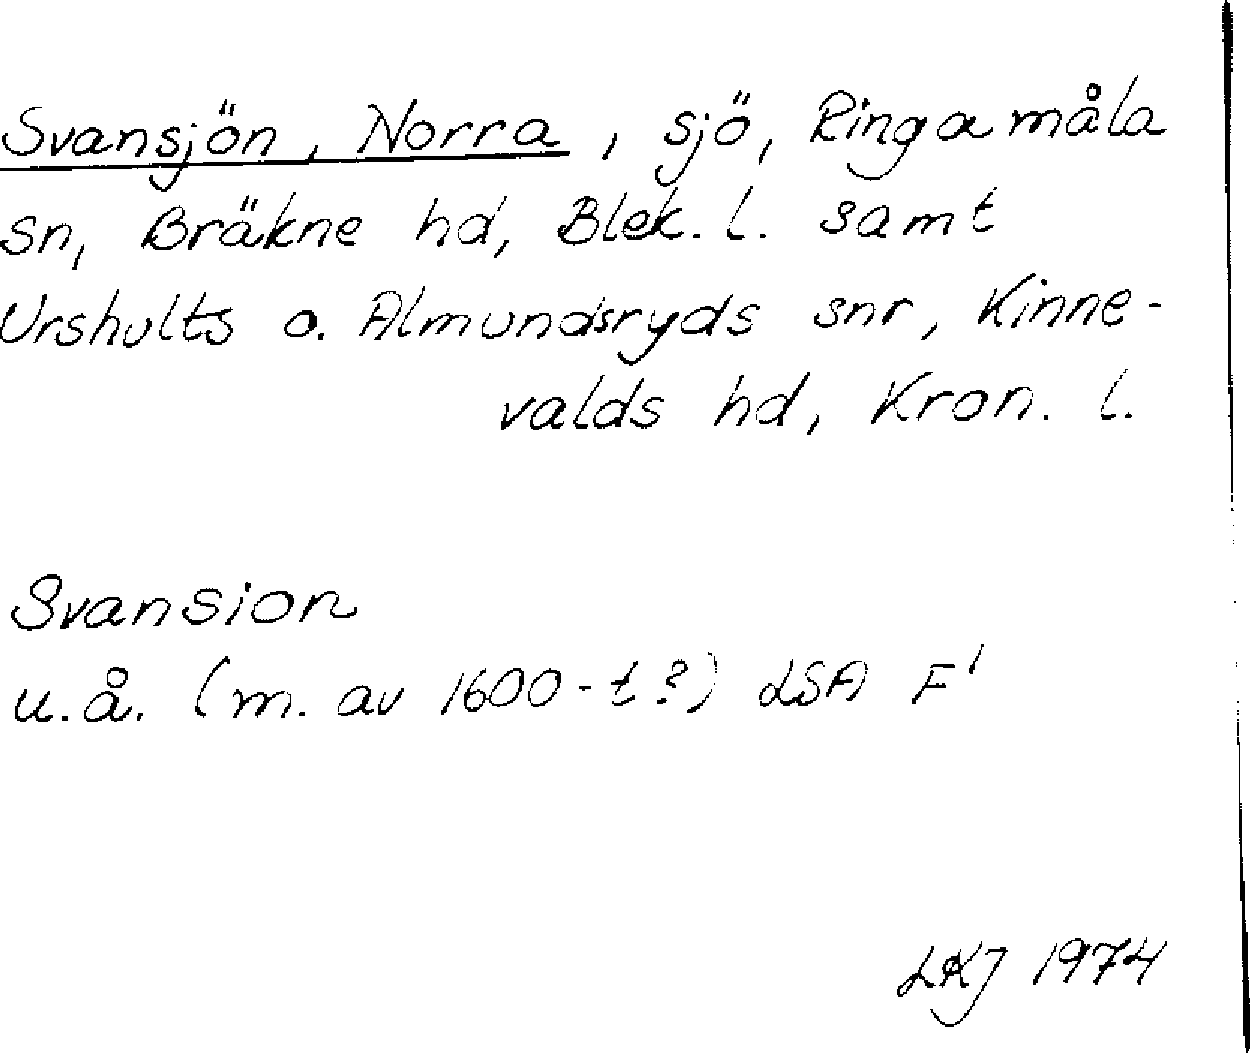 Svansjön, Norra, sjö, Ringamåla
sn, Bräkne hd, Blek. l. samt
Urshults o. Almundsryds snr, Kinne-
valds hd, Kron. l.
Svansion
u.å. (m. av 1600-t?) LSA F'
LKJ 1974